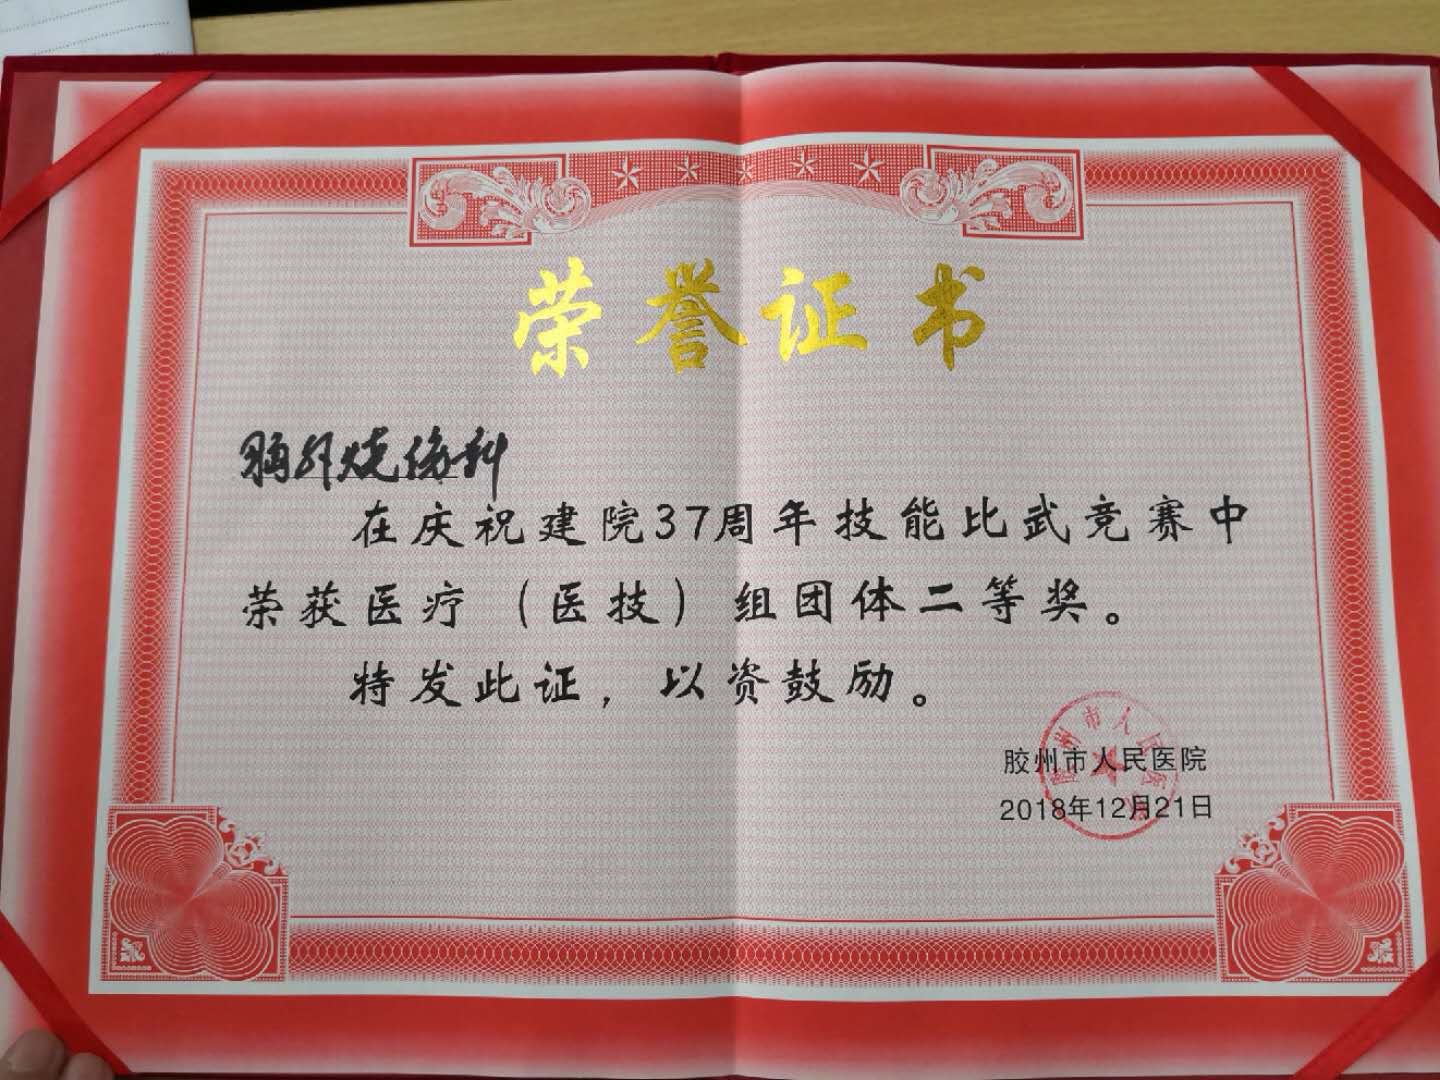 荣誉证书
脑外烧伤科
在庆祝建院37周年技能比武竞赛中
荣获医疗（医技）组团体二等奖。
特发此证，以资鼓励。
胶州市人民医院
胶州市人民医院
2018年12月21日